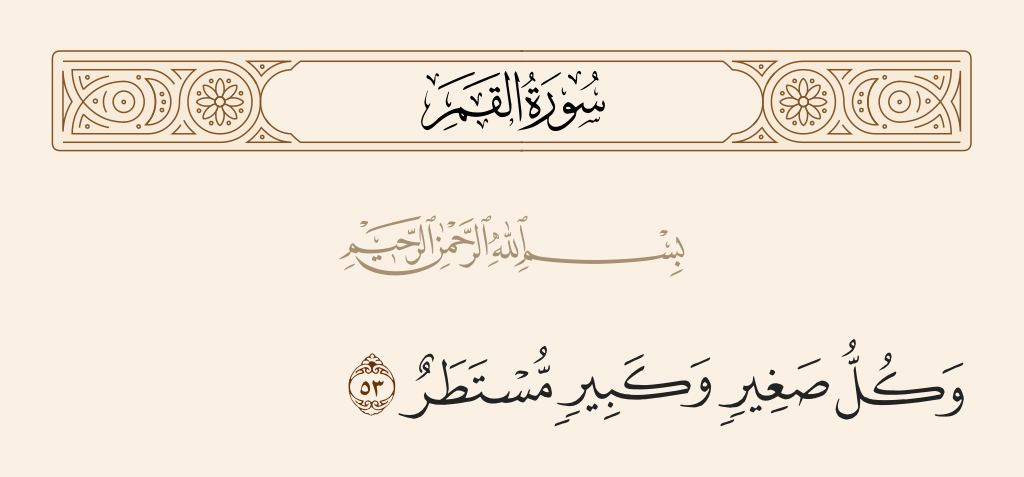 سُورَةُ القَمَرِ
بِسْمِ ٱللَّهِ ٱلرَّحْمَٰنِ ٱلرَّحِيمِ
وَكُلُّ صَغِيرٍ وَكَبِيرٍ مُّسْتَطَرٌ ٥٣